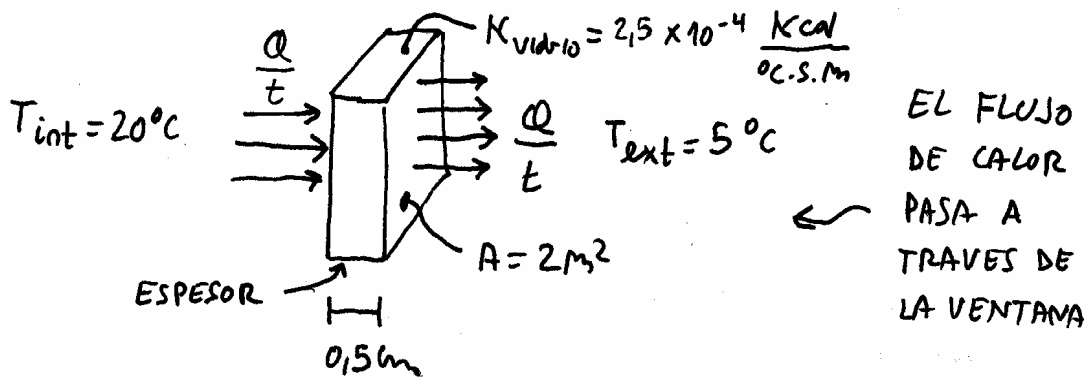 K vidrio = 2,5 × 10⁻⁴ Kcal / °C.S.m
Q / t
T int = 20°C
Q / t
T ext = 5 °C
A = 2 m²
ESPESOR
0,5 cm
EL FLUJO
DE CALOR
PASA A
TRAVES DE
LA VENTANA